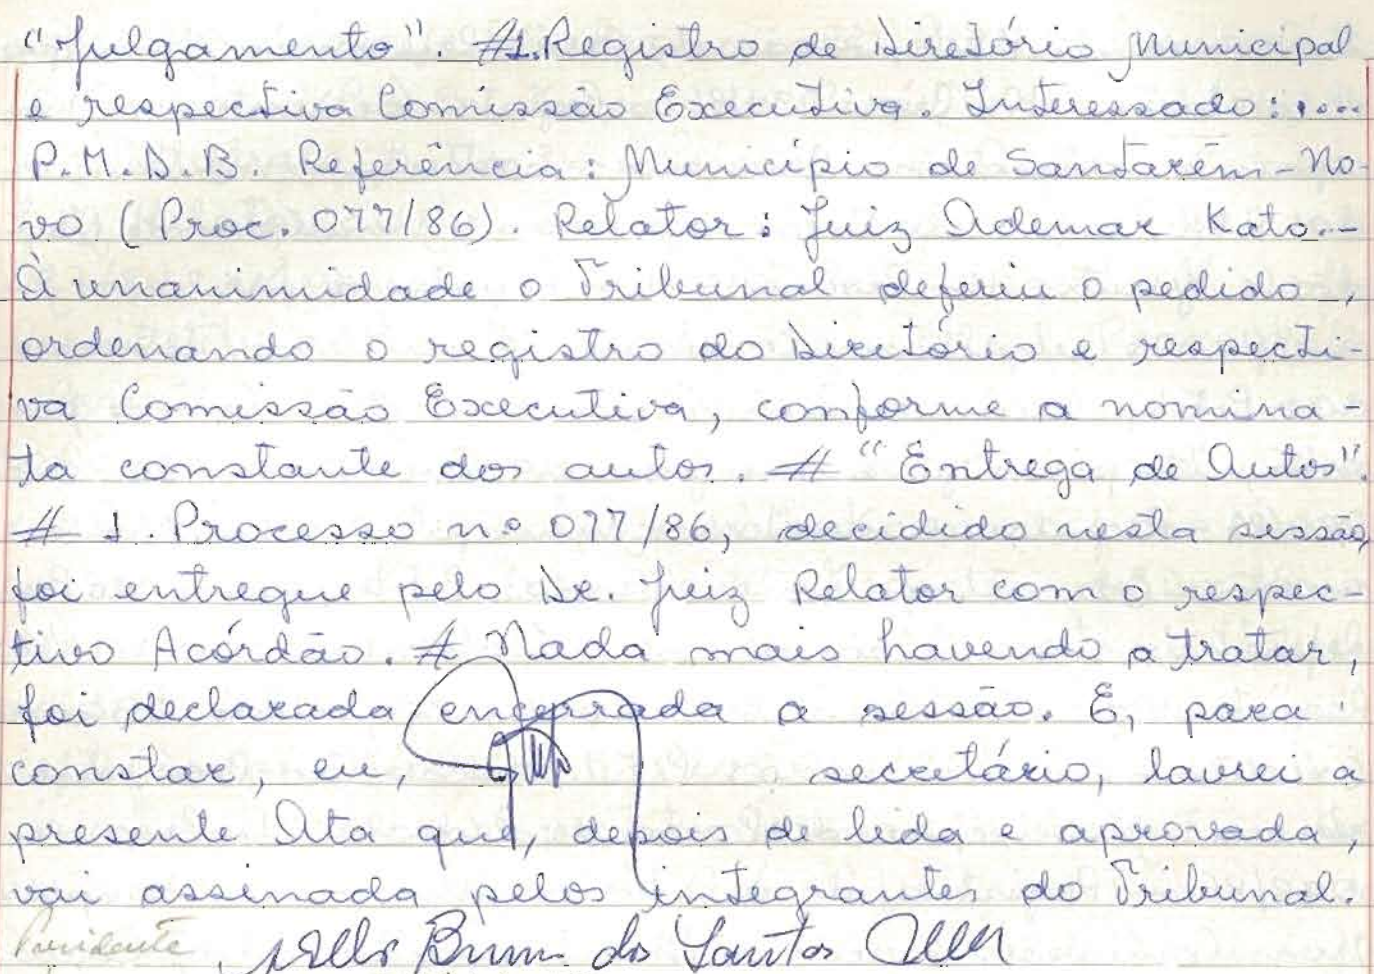 "Julgamento". #1. Registro de Diretório Municipal
e respectiva Comissão Executiva. Interessado: ....
P.M.D.B. Referência: Município de Santarém-No-
vo (Proc. 077/86). Relator: Juiz Ademar Kato.--
À unanimidade o Tribunal deferiu o pedido -,
ordenando o registro do Diretório e respecti-
va Comissão Executiva, conforme a nomina-
ta constante dos autos. # "Entrega de Autos".
# 1. Processo nº 077/86, decidido nesta sessão,
foi entregue pelo Dr. Juiz Relator com o respec-
tivo Acórdão. # Nada mais havendo a tratar,
foi declarada encerrada a sessão. E, para
constar, eu, secretário, lavrei a
presente Ata que, depois de lida e aprovada,
vai assinada pelos integrantes do Tribunal.
Presidente, dos Santos